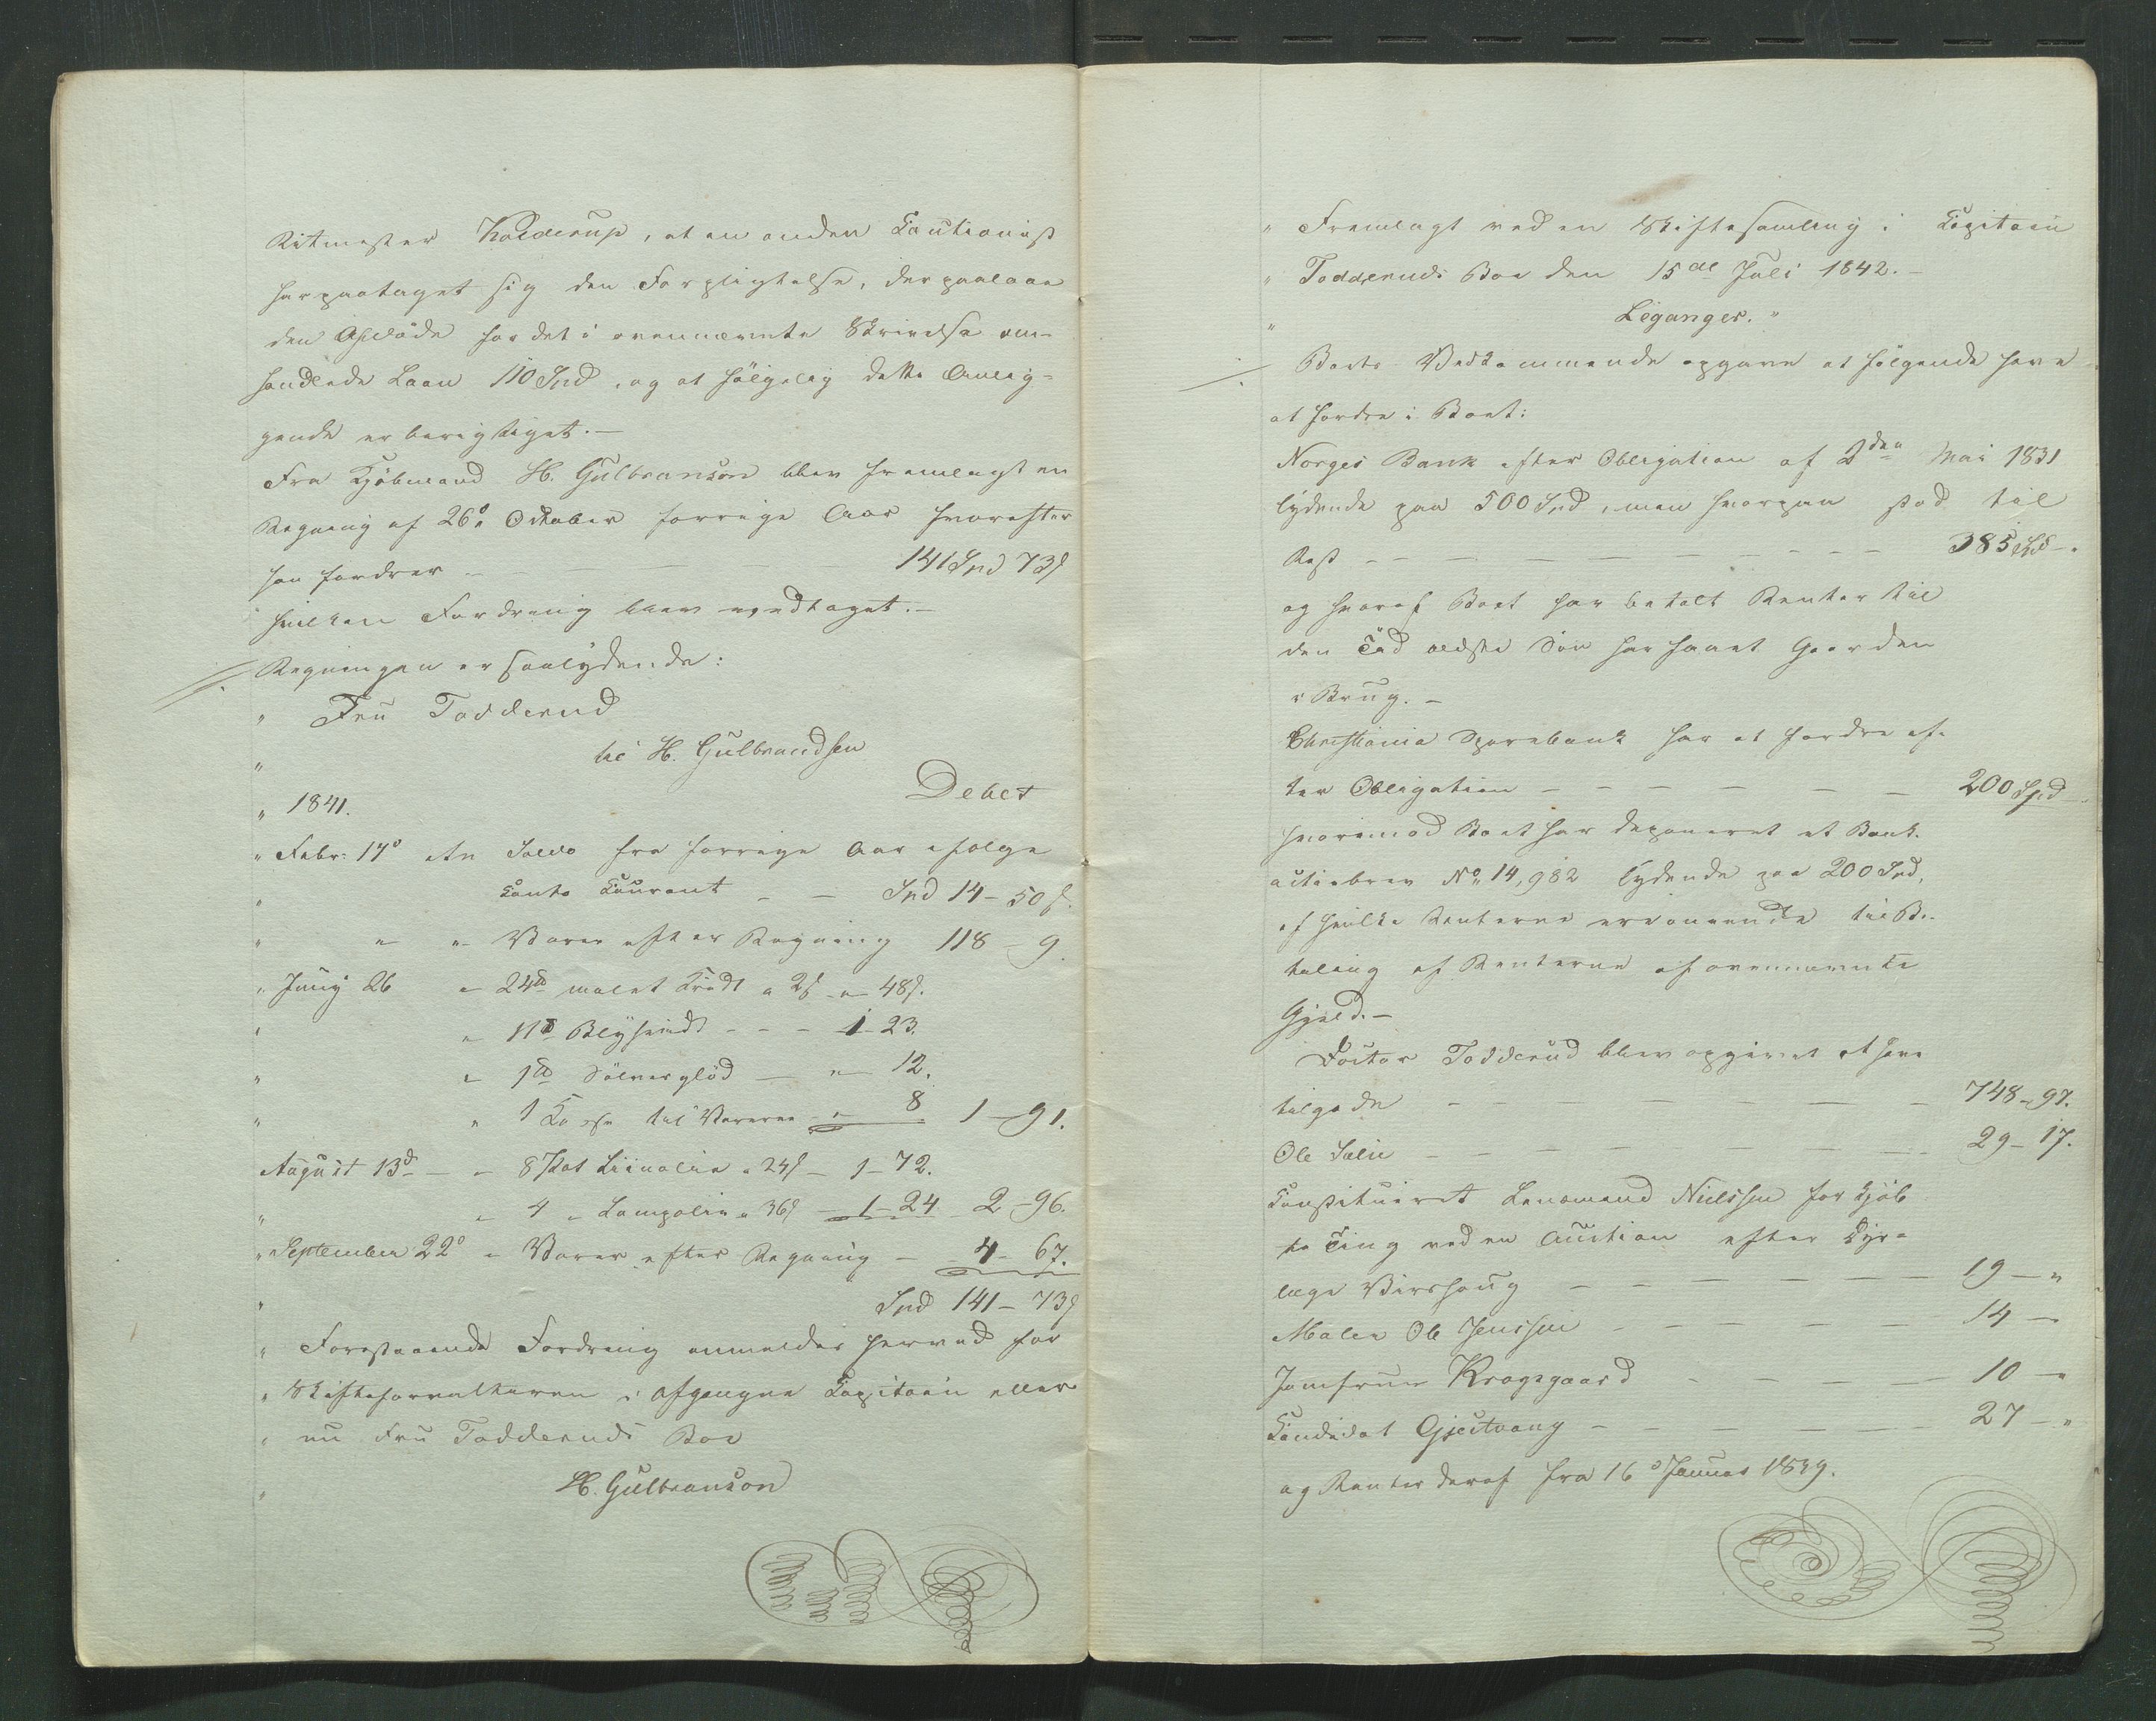 Ritmester Kolderup, at en anden Cautionist
har paataget sig den Forpligtelse, der paalaae
den Afdøde for det i ovennævnte Skrivelse om-
handlede Laan 110 Spd, og at følgelig dette Anlig-
gende er berigtiget.—
Fra Kjøbmand H. Gulbranson blev fremlagt en
Regning af 26de Oktober forrige Aar hvorefter
han fordrer — — — 141 Spd 73 s
hvilken Fordring blev vedtaget.—
Regningen er saalydende:
" Fru Todderud
" til H. Gulbrandsen
" 1841. Debet
" Febr: 17d An Saldo fra forrige Aar ifølge
" Conto Courant — — Spd 14 – 50 s.
" " " Varer efter Regning 118 – 9.
" Juny 26 " 24 ℔ malet Kridt a 2 s " 48 s.
" " 11 ℔ Blyhvidt - - - 1 - 23.
" " 1 ℔ Sølverglød — " 12.
" " 1 Kasse til Varerne " 8 1 – 91.
August 13d — " 8 Pot Liinolie a 24 s – 1 – 72.
" " 4 " Lampolie a 36 s – 1 – 24 2 – 96.
" September 22d " Varer efter Regning — 4 – 67.
" Spd 141 – 73 s
" Forestaaende Fordring anmeldes herved for
" Skifteforvalteren i afgangne Capitain eller
" nu Fru Todderuds Boe
" H. Gulbranson
" Fremlagt ved en Skiftesamling i Capitain
" Todderuds Boe den 15de Juli 1842.—
" Leganger. "
Boets Vedkommende opgave at følgende have
at fordre i Boet:
Norges Bank efter Obligation af 2den Mai 1831
lydende paa 500 Spd, men hvorpaa stod til
Rest — — — 385 Spd —.
og hvoraf Boet har betalt Renter til
den Tid ældste Søn har faaet Gaarden
i Brug.—
Christiania Sparebank har at fordre ef-
ter Obligation — — — 200 Spd —
hvorimod Boet har deponeret et Bank-
actiebrev No 14,982 lydende paa 200 Spd,
af hvilke Renterne ere anvendte til Be-
taling af Renterne af ovennævnte
Gjæld.—
Doctor Todderud blev opgivet at have
tilgode — — — 748 – 97.
Ole Lelie — — — 29 – 17.
Constitueret Lensmand Nielssen for kjøb-
te Ting ved en Auction efter Dyr-
læge Birshaug — — — 19 — "
Maler Ole Jenssen — — — 14 — "
Jomfrue Krogsgaard — — — 10 — "
Candidat Gjestvang — — — 27 — "
og Renter deraf fra 16d Januar 1839.